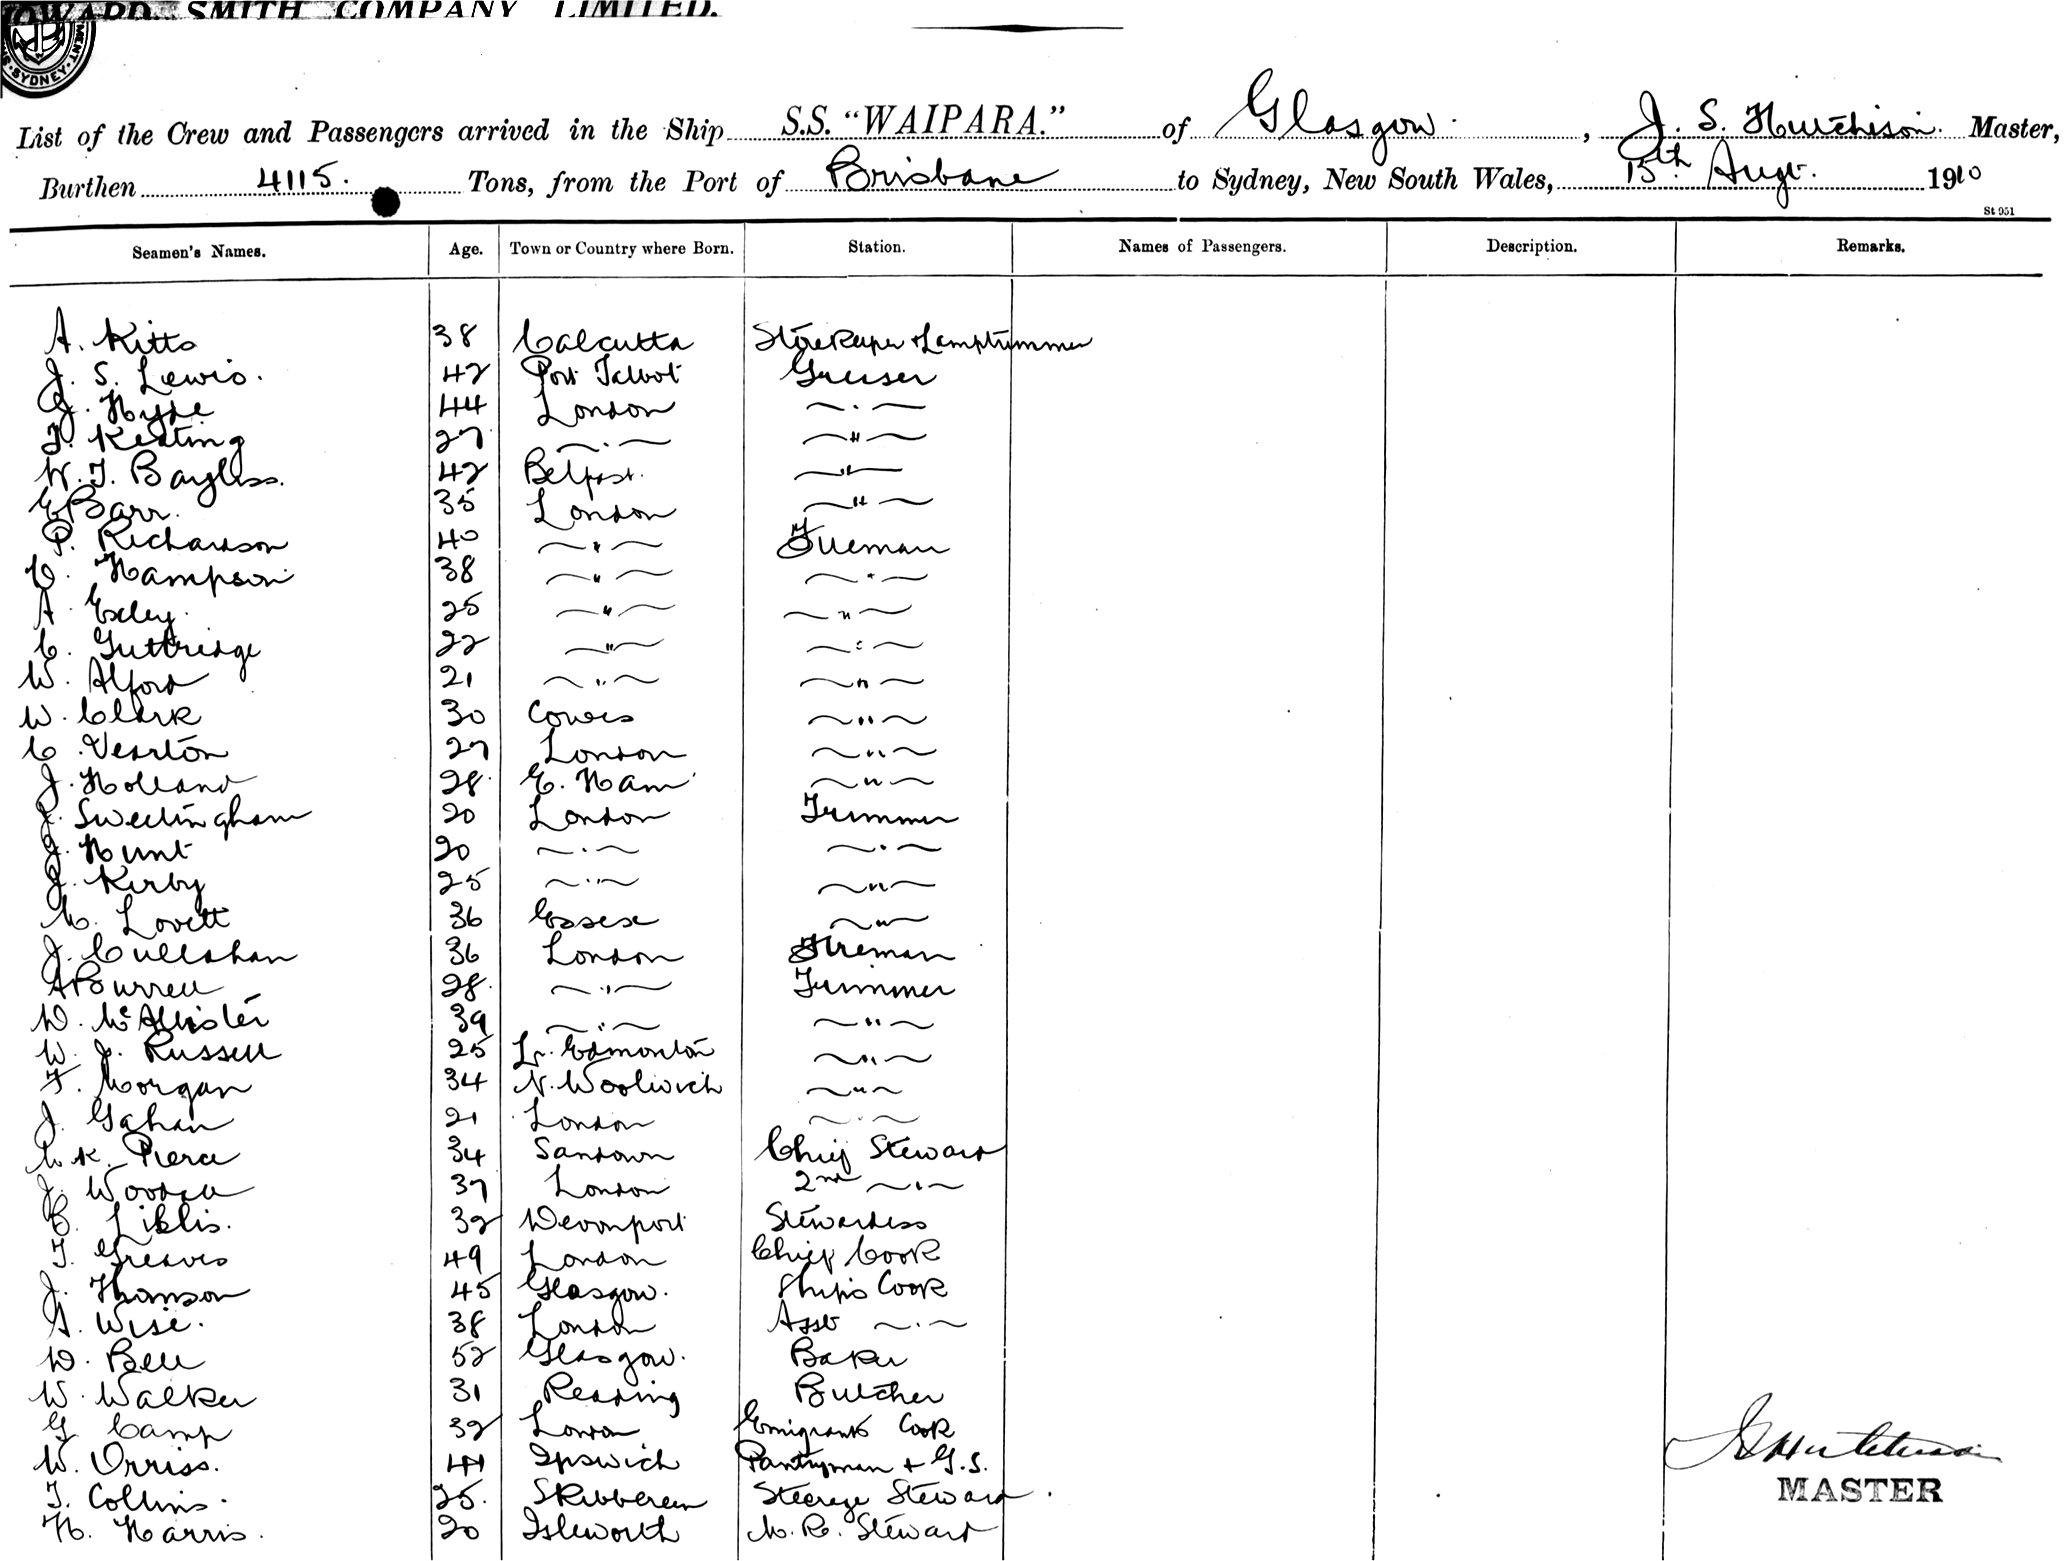 HOWARD SMITH COMPANY LIMITED.
SYDNEY
List of the Crew and Passengers arrived in the Ship S.S. "WAIPARA." of Glasgow. , J. S. Hutchison. Master,
Burthen 4115. Tons, from the Port of Brisbane to Sydney, New South Wales, 15th Augt. 1910
St 951
Seamen's Names. Age. Town or Country where Born. Station. Names of Passengers. Description. Remarks.
A. Kitto 38 Calcutta Storekeeper & Lamptrimmer
J. S. Lewis. 42 Port Talbot Greaser
J. Hyde 44 London — " —
J. Keating 27 — " — — " —
W. J. Bayliss. 42 Belfast. — " —
E Barr. 35 London — " —
P. Richardson 40 — " — Fireman
C. Hampson 38 — " — — " —
A. Exley. 25 — " — — " —
C. Guttridge 22 — " — — " —
W. Alford 21 — " — — " —
W. Clark 30 Cowes — " —
C. Vearton 27 London — " —
J. Holland 28. E. Ham — " —
J. Sweetingham 20 London Trimmer
J. Hunt 20 — " — — " —
J. Kirby 25 — " — — " —
C. Lovett 36 Essex — " —
J. Cullahan 36 London Fireman
A Burrell 28. — " — Trimmer
D. McAllister 39 — " — — " —
W. J. Russell 25 Lr. Edmonton — " —
F. Morgan 34 N. Woolwich — " —
J. Gahan 21 London — " —
K. Pierce 34 Sandown Chief Steward
J. 37 London 2nd — " —
32 Devonport Stewardess
T. Greaves 49 London Chief Cook
J. Thomson 45 Glasgow. Ships Cook
A. Wise. 38 London Asst — " —
D. Bell 52 Glasgow. Baker
W. Walker 31 Reading Butcher
G Camp 32 London Emigrants Cook
W. Orriss. 44 Ipswich Pantryman & G.S.
T. Collins. 25. Skibbereen Steerage Steward
H. Harris. 20 Isleworth M. R. Steward
MASTER